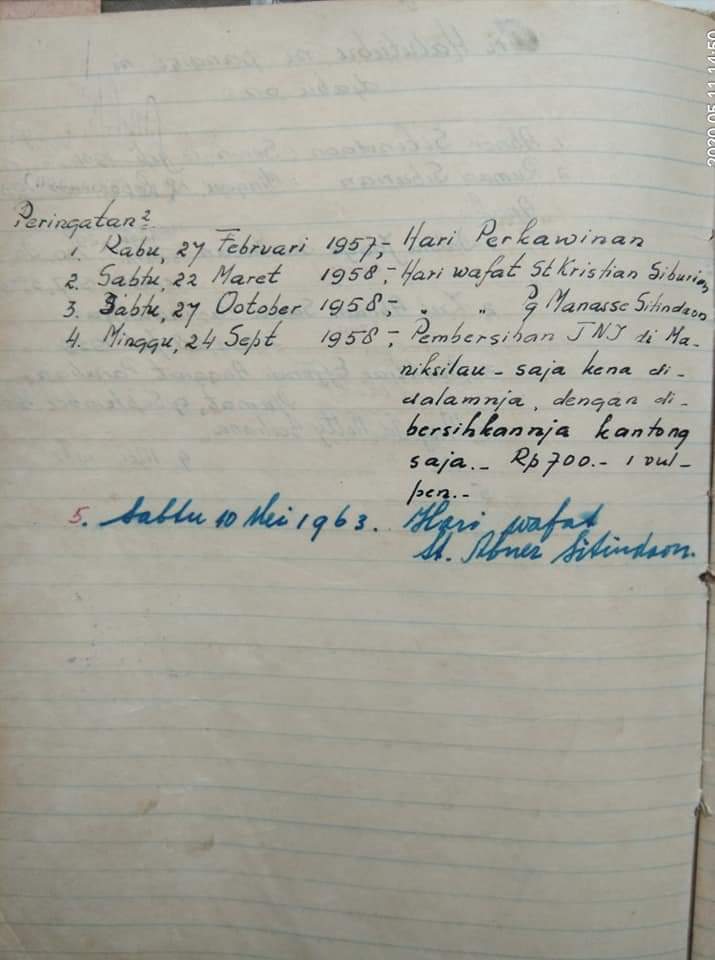 Peringatan²
1. Rabu, 27 Februari 1957,- Hari Perkawinan
2. Sabtu, 22 Maret 1958,- Hari wafat St Kristian Siburian
3. Sabtu, 27 Ootober 1958,- " " Pg Manasse Sitindaon
4. Minggu, 24 Sept 1958,- Pembersihan TNI di Ma-
niksilau - saja kena di-
dalamnja, dengan di-
bersihkannja kantong
saja.- Rp 700.- 1 vul-
pen.-
5. Sabtu 10 Mei 1963. Hari wafat
St. Abner Sitindaon.
2020.05.11 14:50